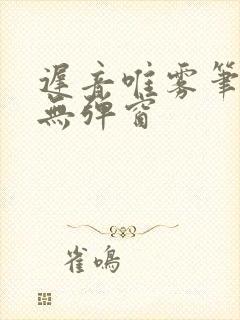 遲音唯雾筆
無彈窗
雀鳴